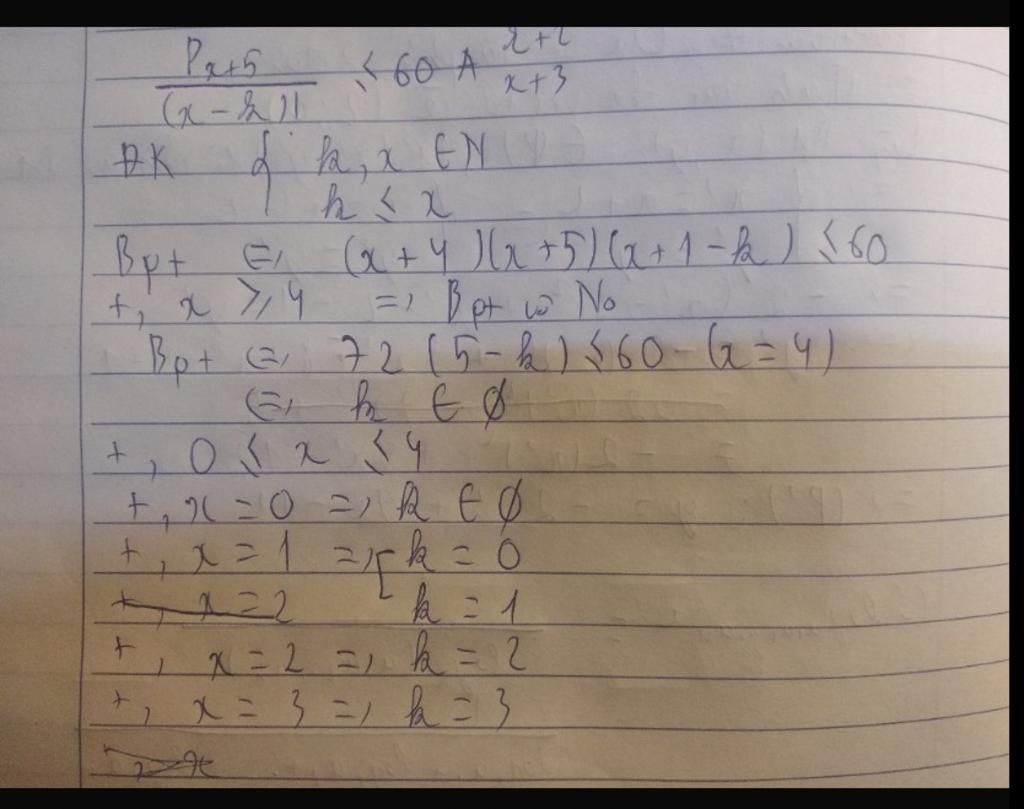 P_{x+5} / (x - k)! ≤ 60 A_{x+3}
ĐK { k, x ∈ N
k ≤ x
Bpt ⇔ (x + 4)(x + 5)(x + 1 - k) ≤ 60
+, x ≥ 4 => Bpt vô No
Bpt ⇔ 72 (5 - k) ≤ 60 - (x = 4)
⇔ k ∈ ∅
+, 0 ≤ x ≤ 4
+, x = 0 => k ∈ ∅
+, x = 1 => [ k = 0
+, x = 2 k = 1
+, x = 2 => k = 2
+, x = 3 => k = 3